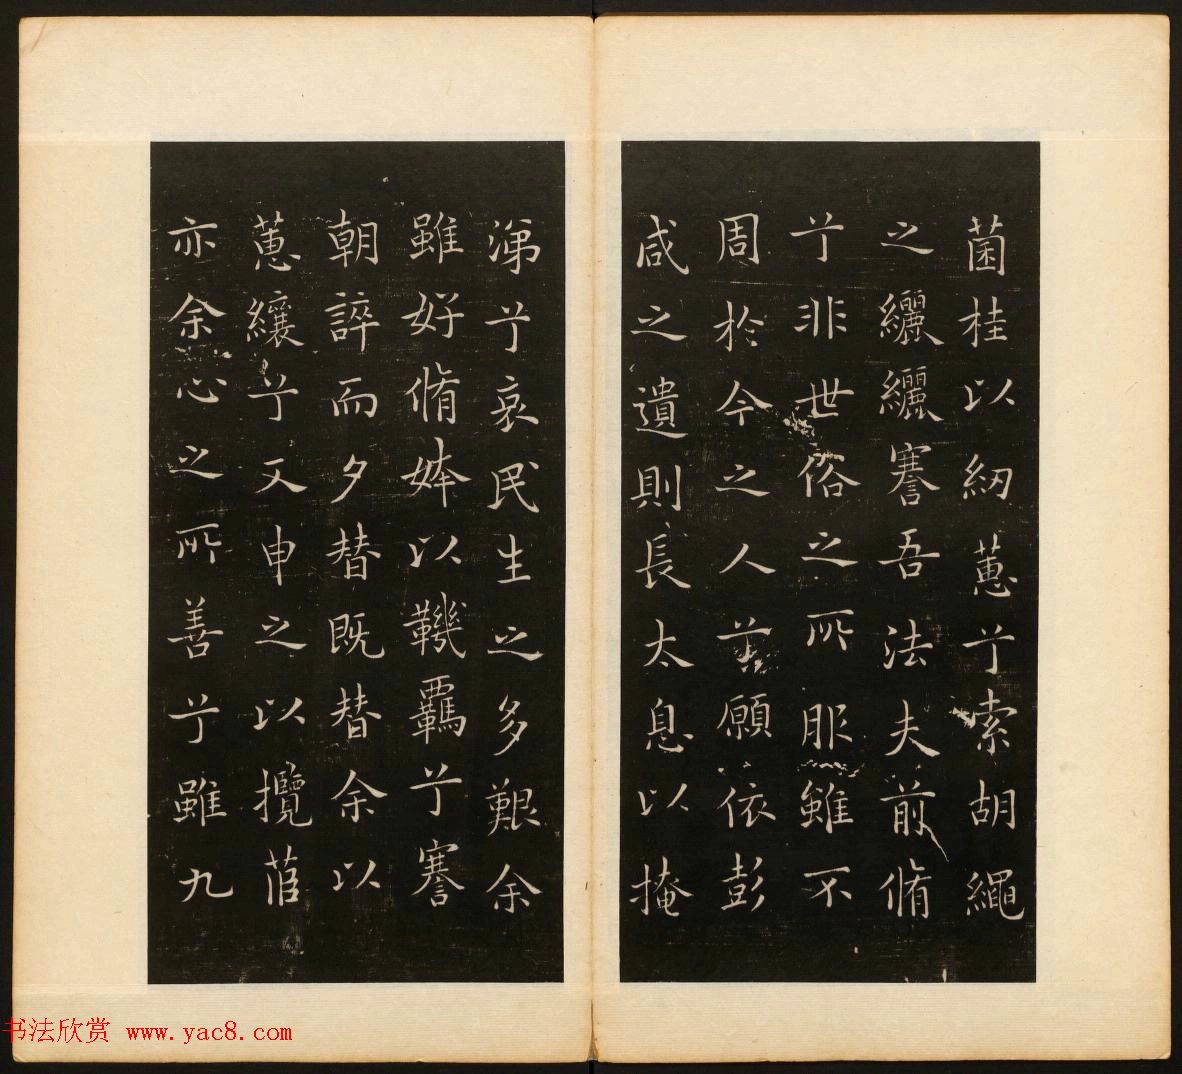 菌桂以紉蕙兮索胡繩
之纚纚謇吾法夫前脩
兮非世俗之所服雖不
周於今之人兮願依彭
咸之遺則長太息以掩
涕兮哀民生之多艱余
雖好脩姱以鞿羈兮謇
朝誶而夕替既替余以
蕙纕兮又申之以攬茝
亦余心之所善兮雖九
书法欣赏 www.yac8.com